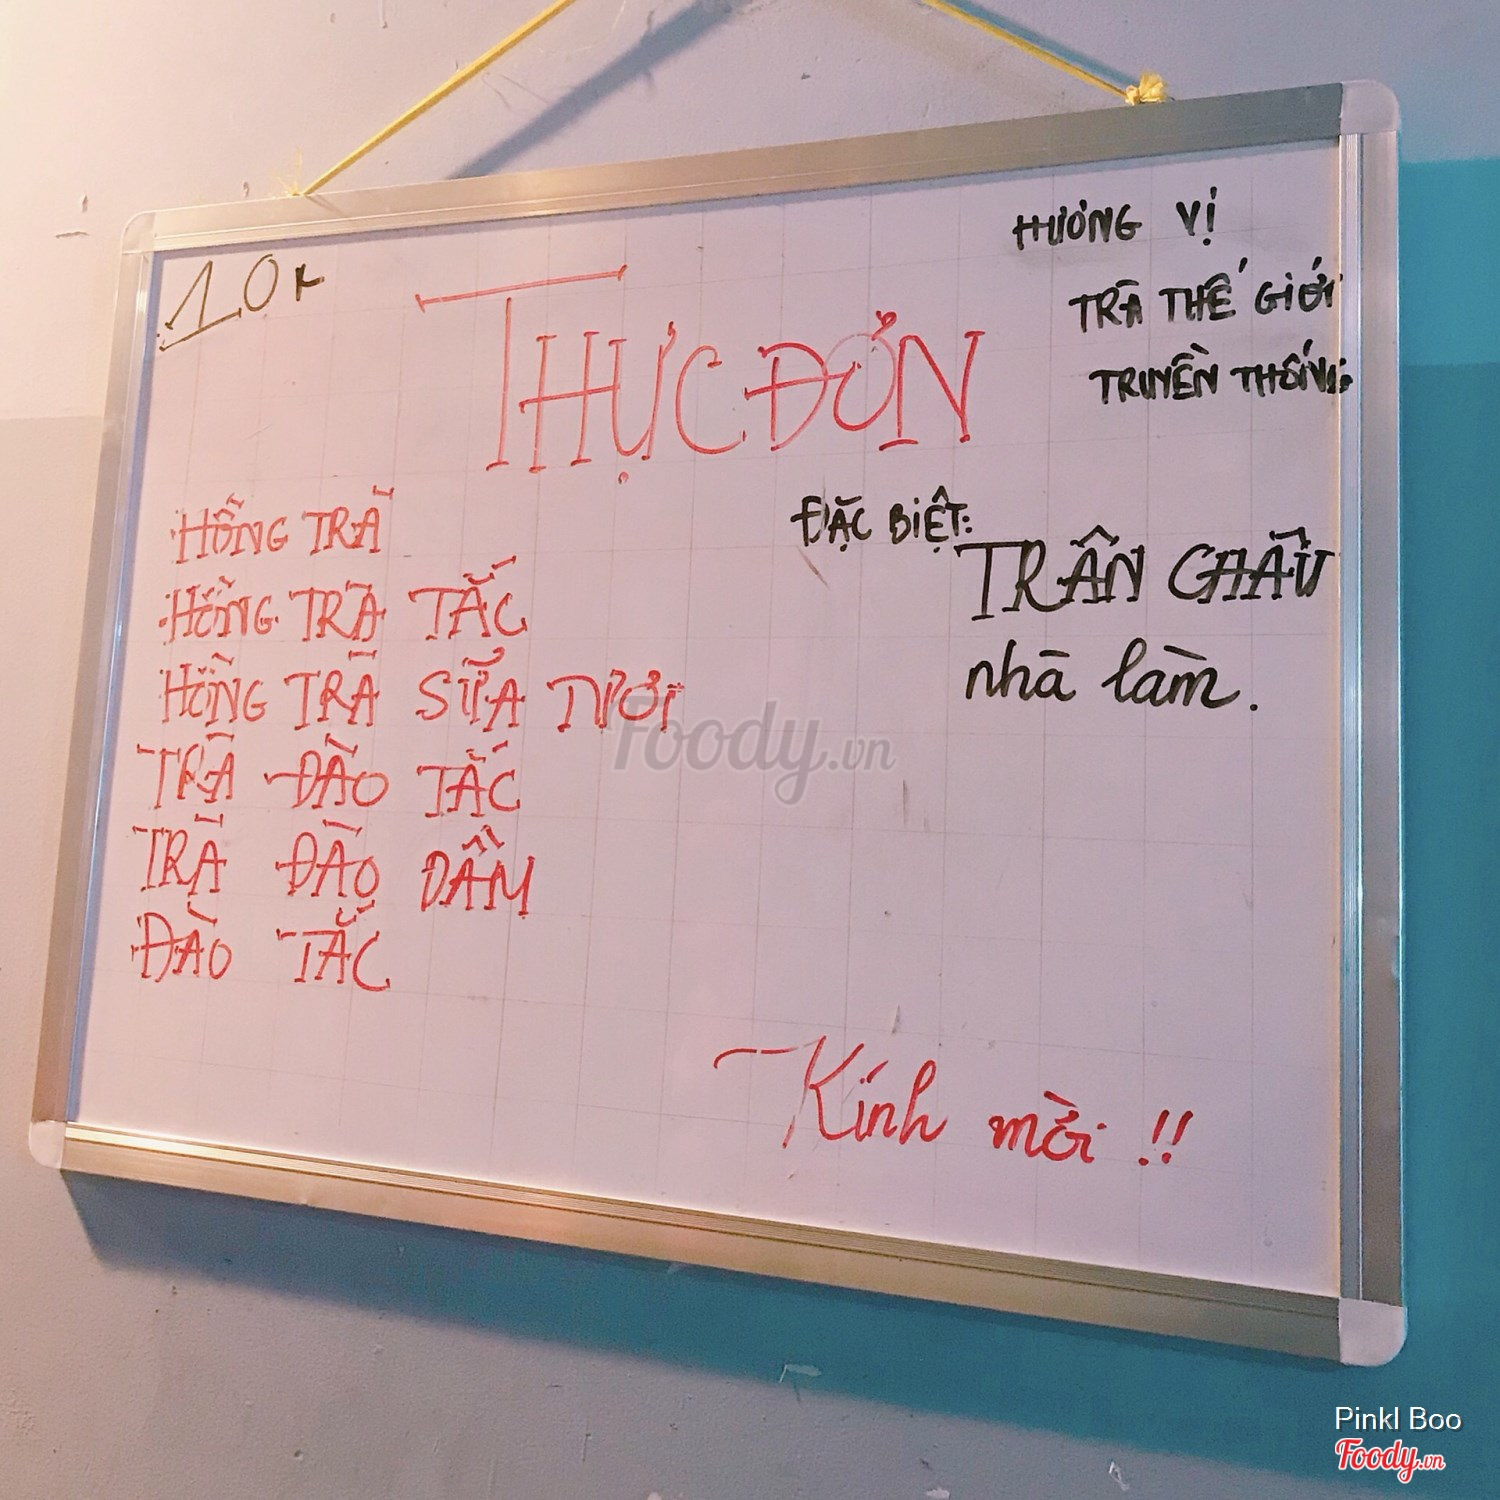 10K
THỰC ĐƠN
HƯƠNG VỊ
TRÀ THẾ GIỚI
TRUYỀN THỐNG
HỒNG TRÀ
HỒNG TRÀ TẮC
HỒNG TRÀ SỮA TƯƠI
TRÀ ĐÀO TẮC
TRÀ ĐÀO DẦM
ĐÀO TẮC
ĐẶC BIỆT:
TRÂN CHÂU
nhà làm.
Kính mời !!
Foody.vn
Pinkl Boo
Foody.vn